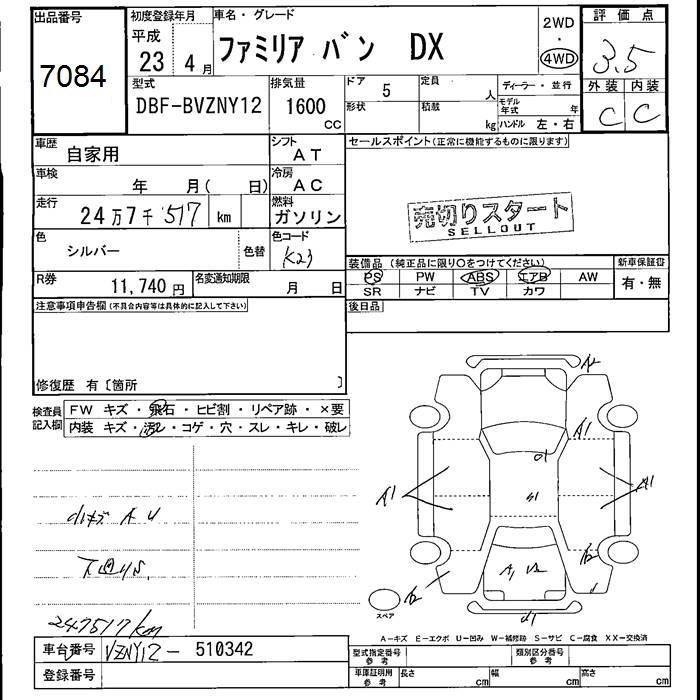 出品番号
7084
初度登録年月
平成
23 4月
車名・グレード
ファミリア バン DX
2WD
・
4WD
評価点
3.5
外装 内装
C C
型式
DBF-BVZNY12
排気量
1600
cc
ドア
5
定員
人
形状
積載
kg
ディーラー・並行
モデル年式
年
ハンドル 左・右
車歴
自家用
シフト
AT
車検
年 月( 日)
冷房
AC
走行
24万7千517 km
燃料
ガソリン
色
シルバー
色替
色コード
K23
R券
11,740円
名変通知期限
月 日
セールスポイント(正常に機能するものに限ります)
売切りスタート
SELLOUT
装備品 (純正品に限り○をつけてください)
PS PW ABS エアB AW
SR ナビ TV カワ
新車保証書
有・無
後日品
注意事項申告欄(不具合内容等は具体的に記入して下さい)
修復歴 有〔箇所 〕
検査員
記入欄
FW キズ・飛石・ヒビ割・リペア跡・×要
内装 キズ・汚レ・コゲ・穴・スレ・キレ・破レ
小キズ A U
下廻りS,
247517km
A1
A1
A1
S1
スペア
d1
A-キズ E-エクボ U-凹み W-補修跡 S-サビ C-腐食 XX-交換済
車台番号
VZNY12-510342
登録番号
型式指定番号
参考
類別区分番号
参考
車庫証明用
参考
長さ cm
幅 cm
高さ cm